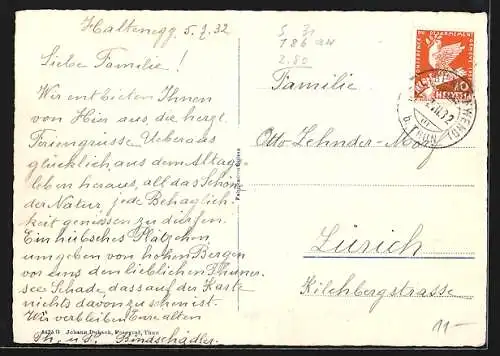 Haltenegg 5. 7. 32
Liebe Familie!
Wir entbieten Ihnen
von Hier aus, die herzl.
Feriengrüsse. Ueberaus
glücklich, aus dem Alltags-
leben heraus, all das Schöne
der Natur, jede Behaglich-
keit geniessen zu dürfen.
Ein hübsches Plätzchen
umgeben von hohen Bergen
vor uns den lieblichen Thuner-
see. Schade dass auf der Karte
nichts davon zu sehen ist.
Wir verbleiben Eure alten
Th. u. P. Bindschädler.
Johann Dubach, Fotograf, Thun
S 31
186
2.80
Familie
Otto Zehnder-
Zürich
Kilchbergstrasse
11.-
CONFERENCE DU DESARMEMENT
HELVETIA
b. THUN